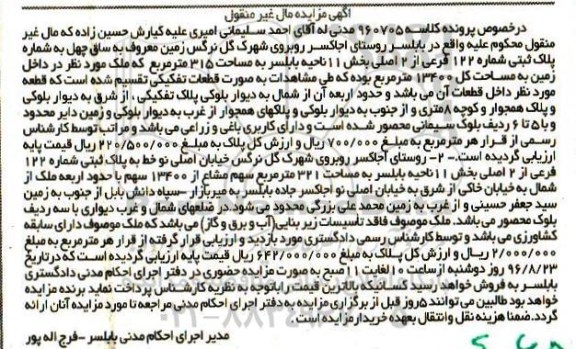 آگهی مزایده مال غیر منقول
درخصوص پرونده کلاسه ۹۶۰۷۰۵ مدنی له آقای احمد سلیمانی امیری علیه کیارش حسین زاده که مال غیر
منقول محکوم علیه واقع در بابلسر روستای آجاکسر روبروی شهرک گل نرگس زمین معروف به ساق چهل به شماره
پلاک ثبتی شماره ۱۲۲ فرعی از ۲ اصلی بخش ۱۱ ناحیه بابلسر به مساحت ۳۱۵ مترمربع که ملک مورد نظر در داخل
زمین به مساحت کل ۱۳۴۰۰ مترمربع بوده که طی مشاهدات به صورت قطعات تفکیکی تقسیم شده است که قطعه
مورد نظر داخل قطعات آن می باشد و حدود اربعه آن از شمال به دیوار بلوکی پلاک تفکیکی، از شرق به دیوار بلوکی
و پلاک همجوار و کوچه ۸ متری و از جنوب به دیوار بلوکی و پلاکهای همجوار از غرب به دیوار بلوکی و زمین دایر محدود
و با ۵ تا ۶ ردیف بلوک سیمانی محصور شده است و دارای کاربری باغی و زراعی می باشد و مراتب توسط کارشناس
رسمی از قرار هر مترمربع به مبلغ ۷۰۰/۰۰۰ ریال و ارزش کل پلاک به مبلغ ۲۲۰/۵۰۰/۰۰۰ ریال قیمت پایه
ارزیابی گردیده است.-۲- روستای آجاکسر روبروی شهرک گل نرگس خیابان اصلی نو خط به پلاک ثبتی شماره ۱۲۲
فرعی از ۲ اصلی بخش ۱۱ ناحیه بابلسر به مساحت ۳۲۱ مترمربع سهم مشاع از ۱۳۴۰۰ سهم با حدود اربعه ملک از
شمال به خیابان خاکی از شرق به خیابان اصلی نو آجاکسر جاده بابلسر به میربازار -سیاه دانش بابل از جنوب به زمین
سید جعفر حسینی و از غرب به زمین محمد علی بزرگی محدود می شود در ضلعهای شمال و غرب دیواری با سه ردیف
بلوک محصور می باشد. ملک موصوف فاقد تأسیسات زیربنایی(آب و برق و گاز) می باشد که ملک موصوف دارای سابقه
کشاورزی می باشد و توسط کارشناس رسمی دادگستری مورد بازدید و ارزیابی قرار گرفته از قرار هر مترمربع به مبلغ
۲/۰۰۰/۰۰۰ ریال و ارزش کل پلاک به مبلغ ۶۴۲/۰۰۰/۰۰۰ ریال قیمت پایه ارزیابی گردیده است که درتاریخ
۹۶/۸/۲۳ روز دوشنبه از ساعت ۱۰ لغایت ۱۱ صبح به صورت مزایده حضوری در دفتر اجرای احکام مدنی دادگستری
بابلسر به فروش خواهد رسید کسانیکه بالاترین قیمت را باتوجه به نظریه کارشناس پرداخت نماید برنده مزایده
خواهد بود طالبین می توانند ۵ روز قبل از برگزاری مزایده به دفتر اجرای احکام مدنی مراجعه تا مورد مزایده آنان ارائه
گردد. ضمنا هزینه نقل وانتقال بعهده خریدار مزایده است.
مدیر اجرای احکام مدنی بابلسر -فرج اله پور